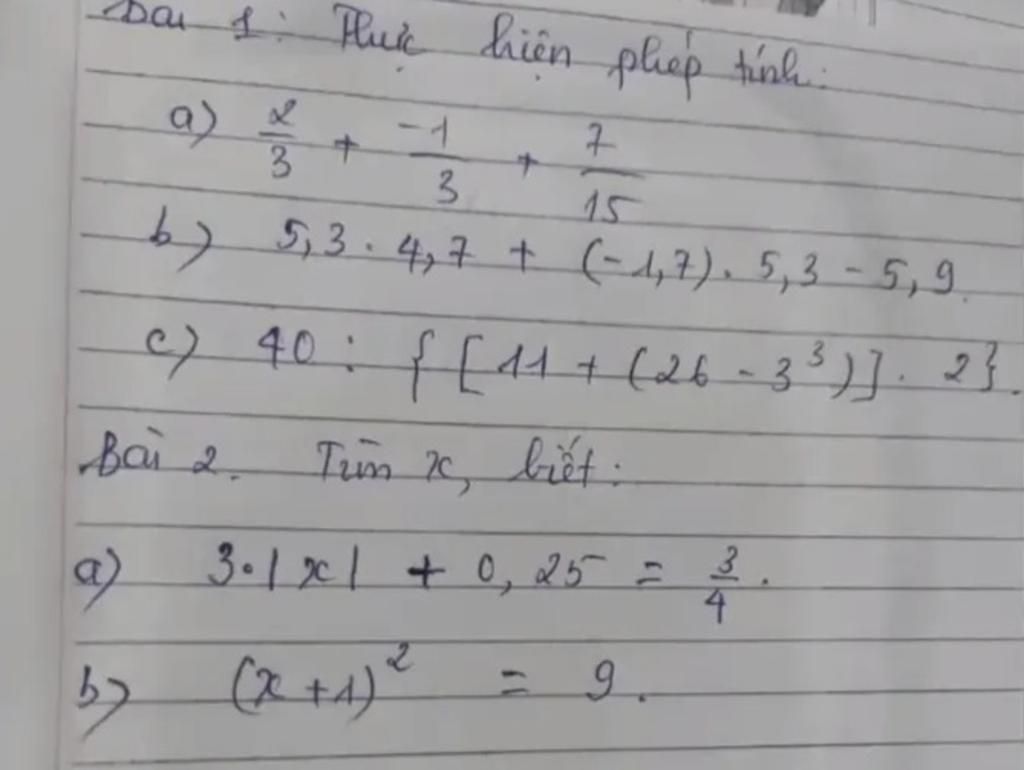 Bài 1: Thực hiện phép tính:
a) 2/3 + -1/3 + 7/15
b) 5,3 . 4,7 + (-1,7) . 5,3 - 5,9.
c) 40 : { [ 11 + (26 - 3³)] . 2}.
Bài 2. Tìm x, biết:
a) 3.|x| + 0,25 = 3/4.
b) (x+1)² = 9.